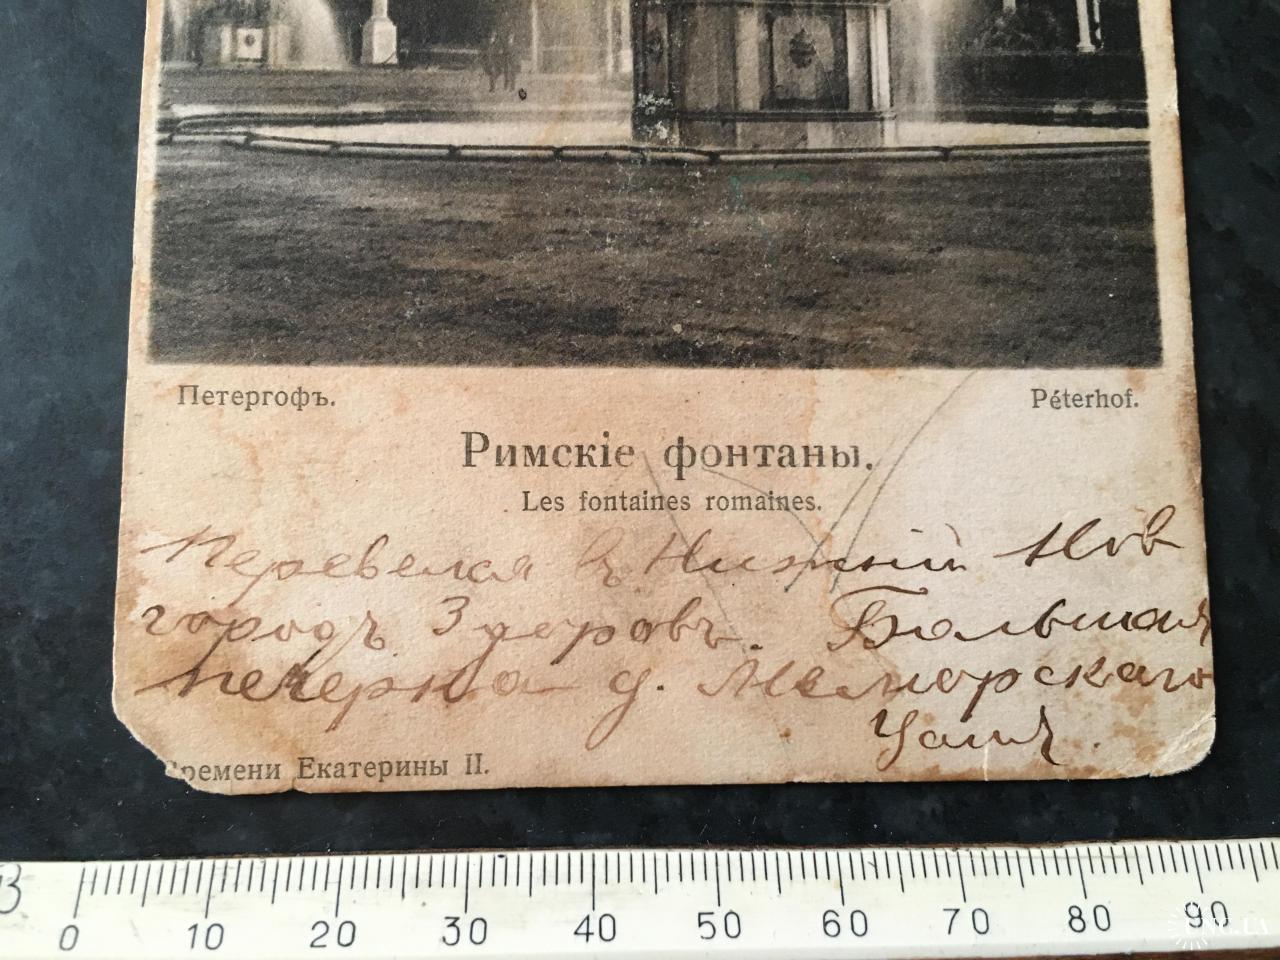 Петергофъ.
Péterhof.
Римскіе фонтаны.
Les fontaines romaines.
Перевелся въ Нижній Нов
городъ Здоровъ. Большая
печерка д.
Времени Екатерины II.
0 10 20 30 40 50 60 70 80 90
UNC.UA